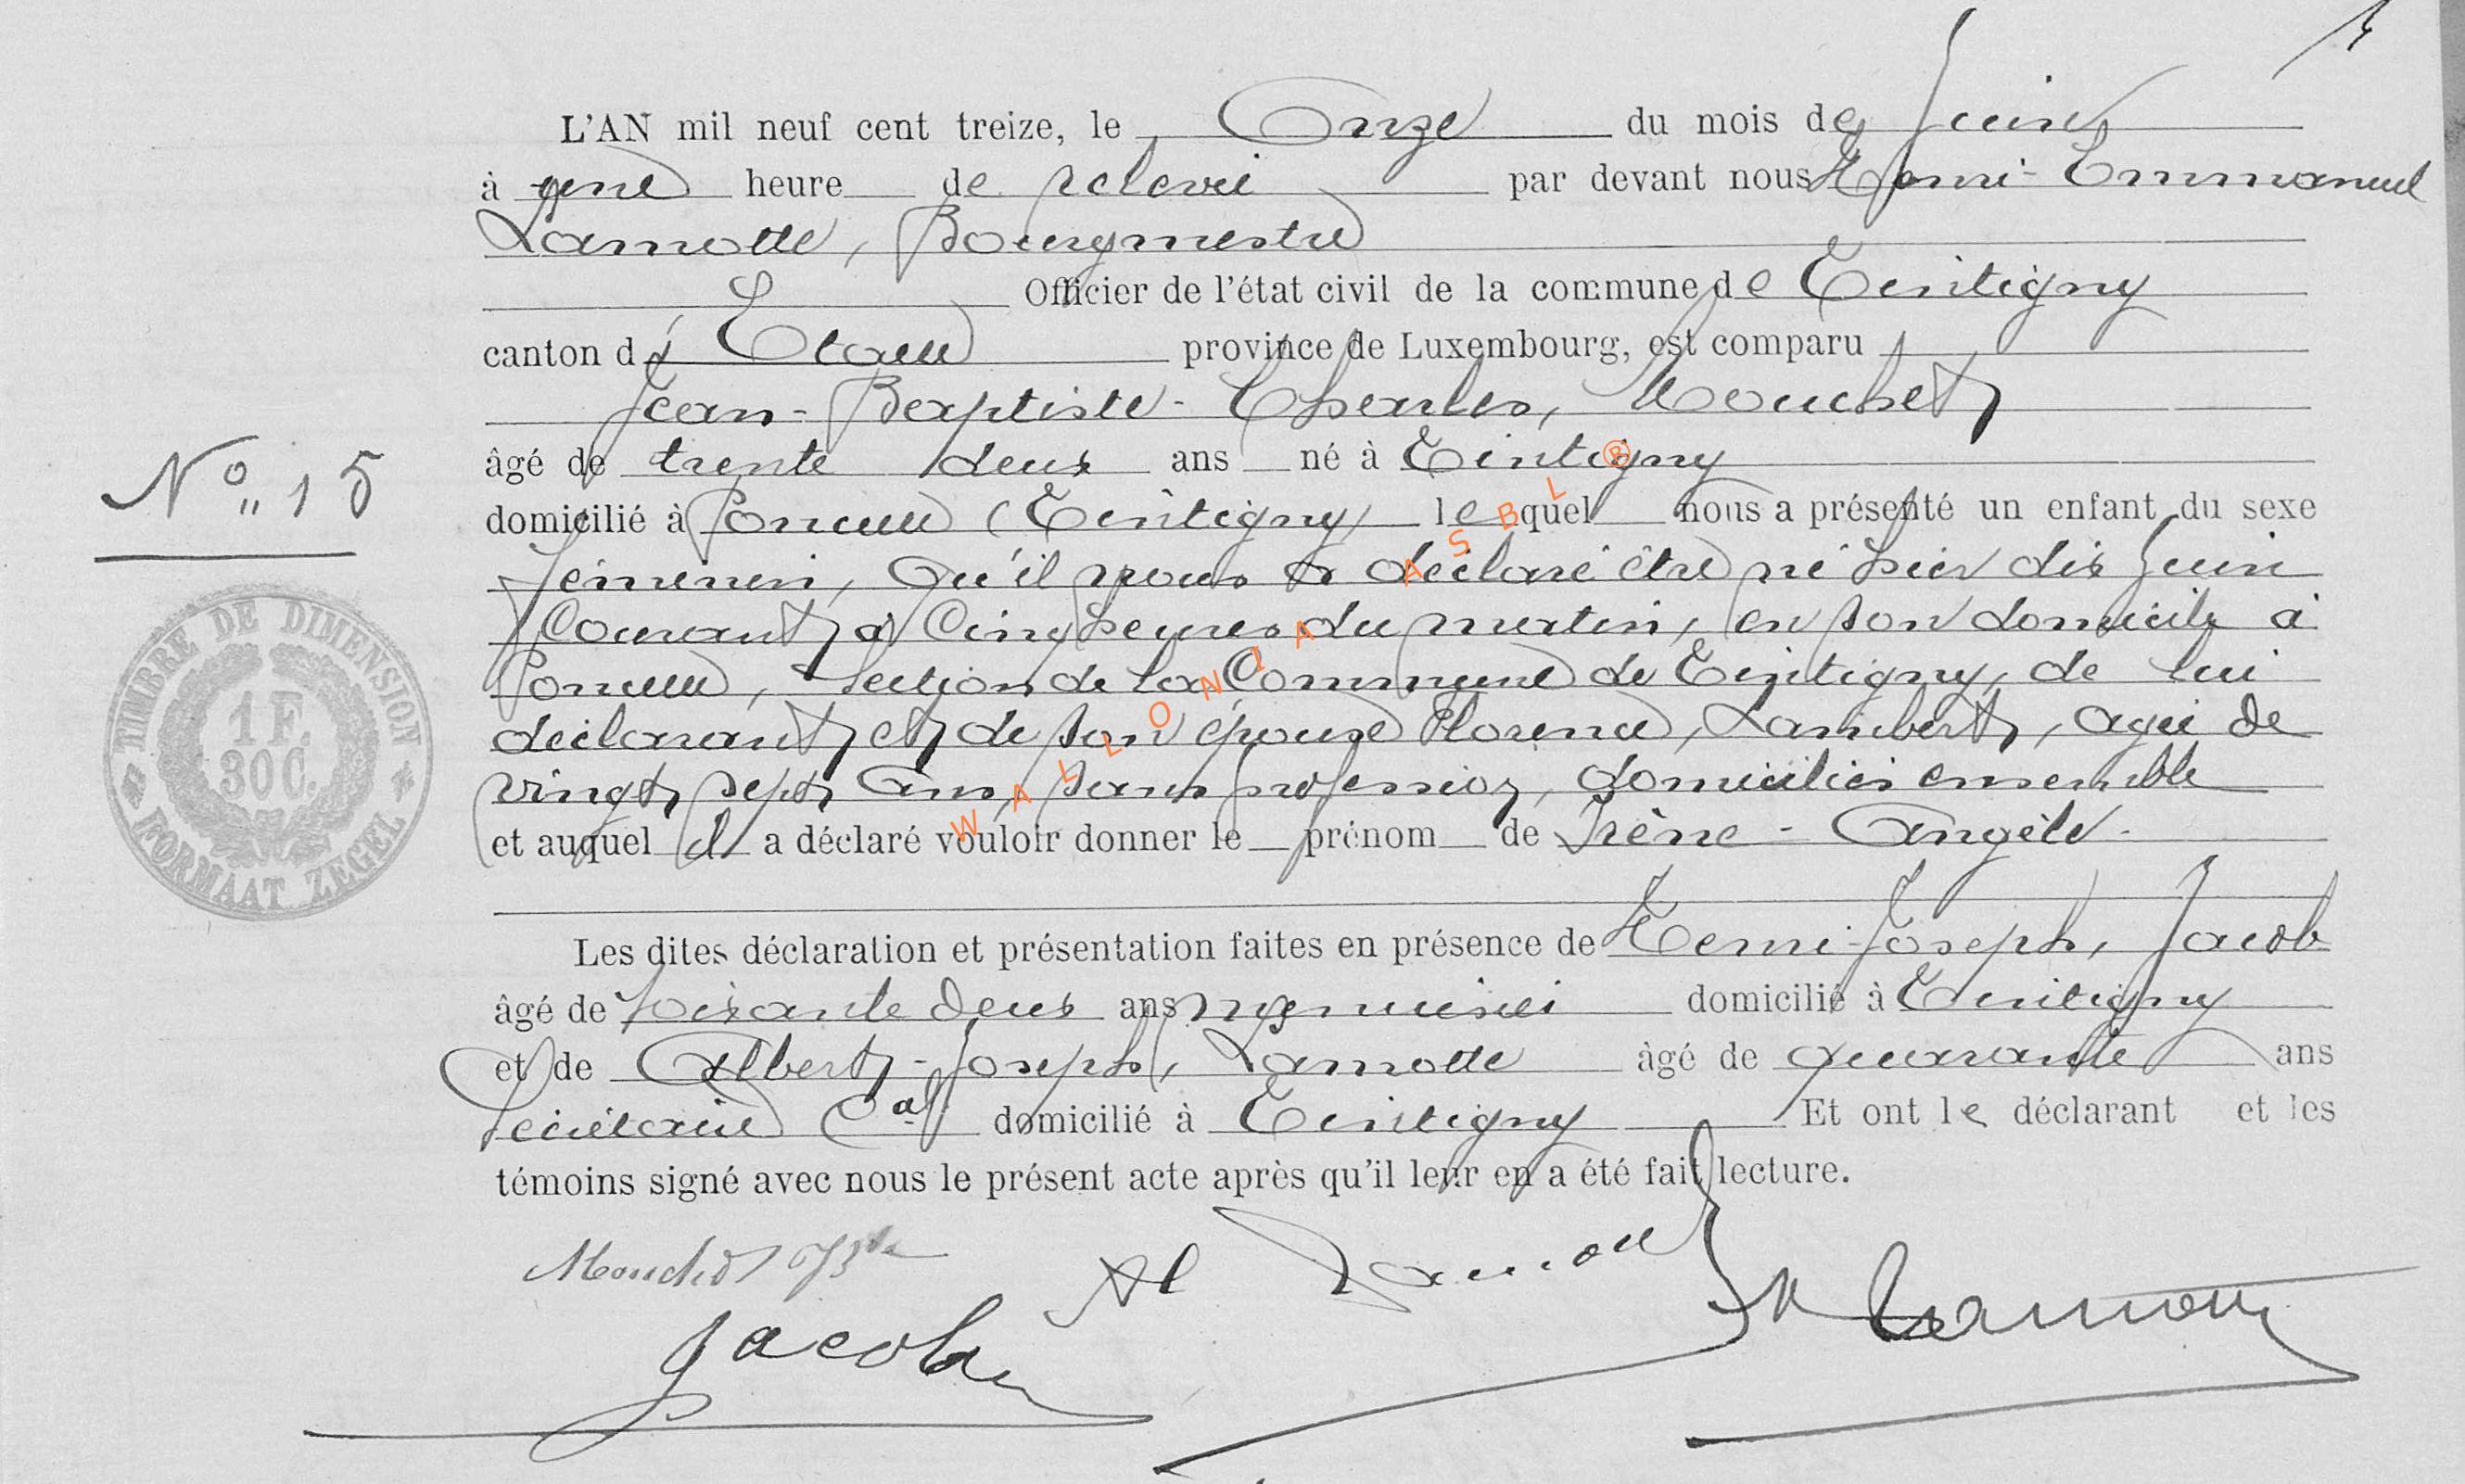 L'AN mil neuf cent treize, le Onze du mois de Juin
à une heure de relevée par devant nous Henri-Emmanuel
Lamotte, Bourgmestre
Officier de l'état civil de la commune de Tintigny
canton d'Etalle province de Luxembourg, est comparu
Jean-Baptiste-Charles, Mouchet
âgé de trente deux ans né à Tintigny
domicilié à Poncelle (Tintigny) lequel nous a présenté un enfant du sexe
féminin, qu'il nous a déclaré être né hier dix Juin
Courant à Cinq heures du matin, en son domicile à
Poncelle, section de la Commune de Tintigny, de lui
déclarant et de son épouse Florence, Lambert, agée de
vingt sept ans, sans profession, domiciliés ensemble
et auquel il a déclaré vouloir donner le prénom de Irène-Angèle.
Les dites déclaration et présentation faites en présence de Henri-Joseph, Jacob
âgé de soixante deux ans menuisier domicilié à Tintigny
et de Albert-Joseph, Lamotte âgé de quarante ans
Secrétaire Cal domicilié à Tintigny Et ont le déclarant et les
témoins signé avec nous le présent acte après qu'il leur en a été fait lecture.
N° 15
TIMBRE DE DIMENSION
1 F.
30 C.
FORMAAT ZEGEL
WALLONIA ASBL ®
Mouchet Bte
Al Lamotte
Jacob
H Lamotte